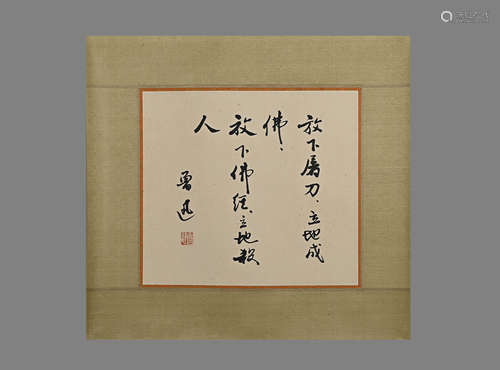 放下屠刀、立地成
佛、
放下佛经、立地殺
人
鲁迅